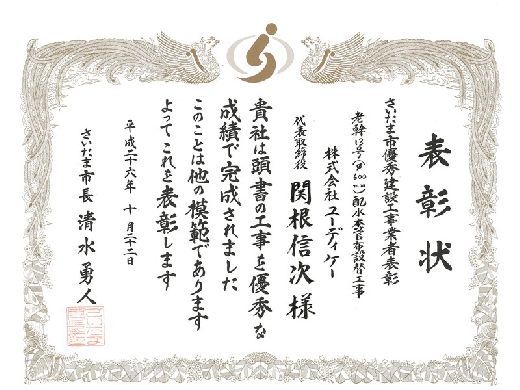 表彰状
さいたま市優秀建設工事業者表彰
配水支管布設替工事
株式会社ユーディケー
代表取締役 関根信次様
貴社は頭書の工事を優秀な
成績で完成されました
このことは他の模範であります
よってこれを表彰します
平成二十六年 十月二十二日
さいたま市長 清水勇人